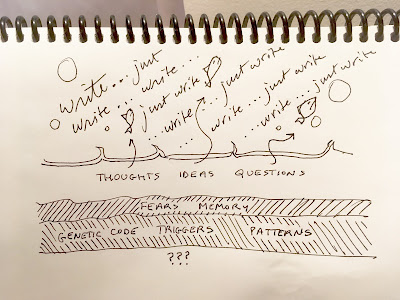 write...just
write.... write...
just write ... just write
...write... write...just write
... ...write...just write
THOUGHTS IDEAS QUESTIONS
FEARS MEMORY
GENETIC CODE TRIGGERS PATTERNS
???